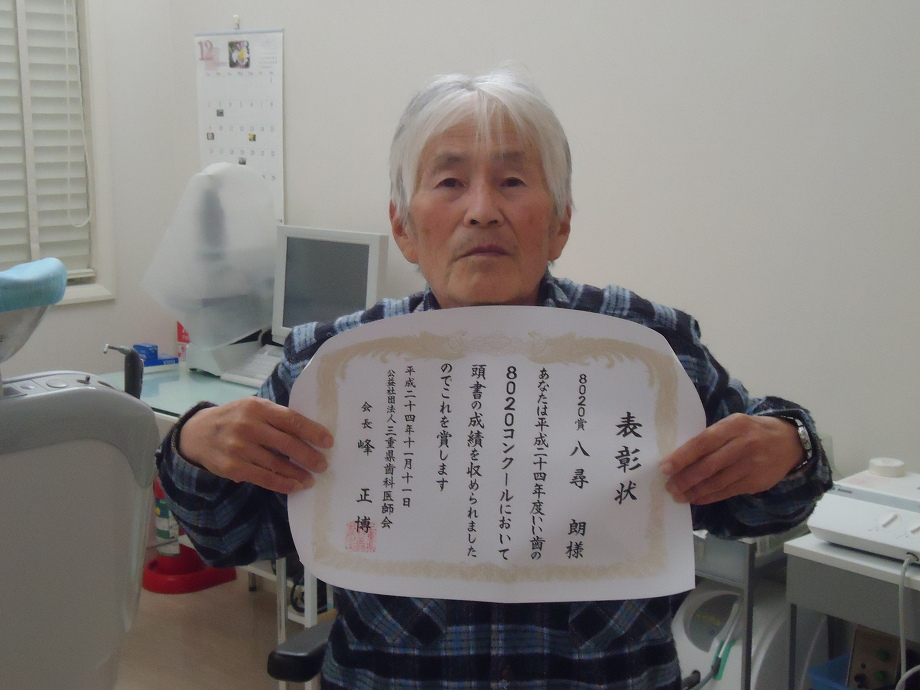 12
表彰状
8020賞 八尋 朗様
あなたは平成二十四年度いい歯の
8020コンクールにおいて
頭書の成績を収められました
のでこれを賞します
平成二十四年十一月十一日
公益社団法人三重県歯科医師会
会長 峰 正博